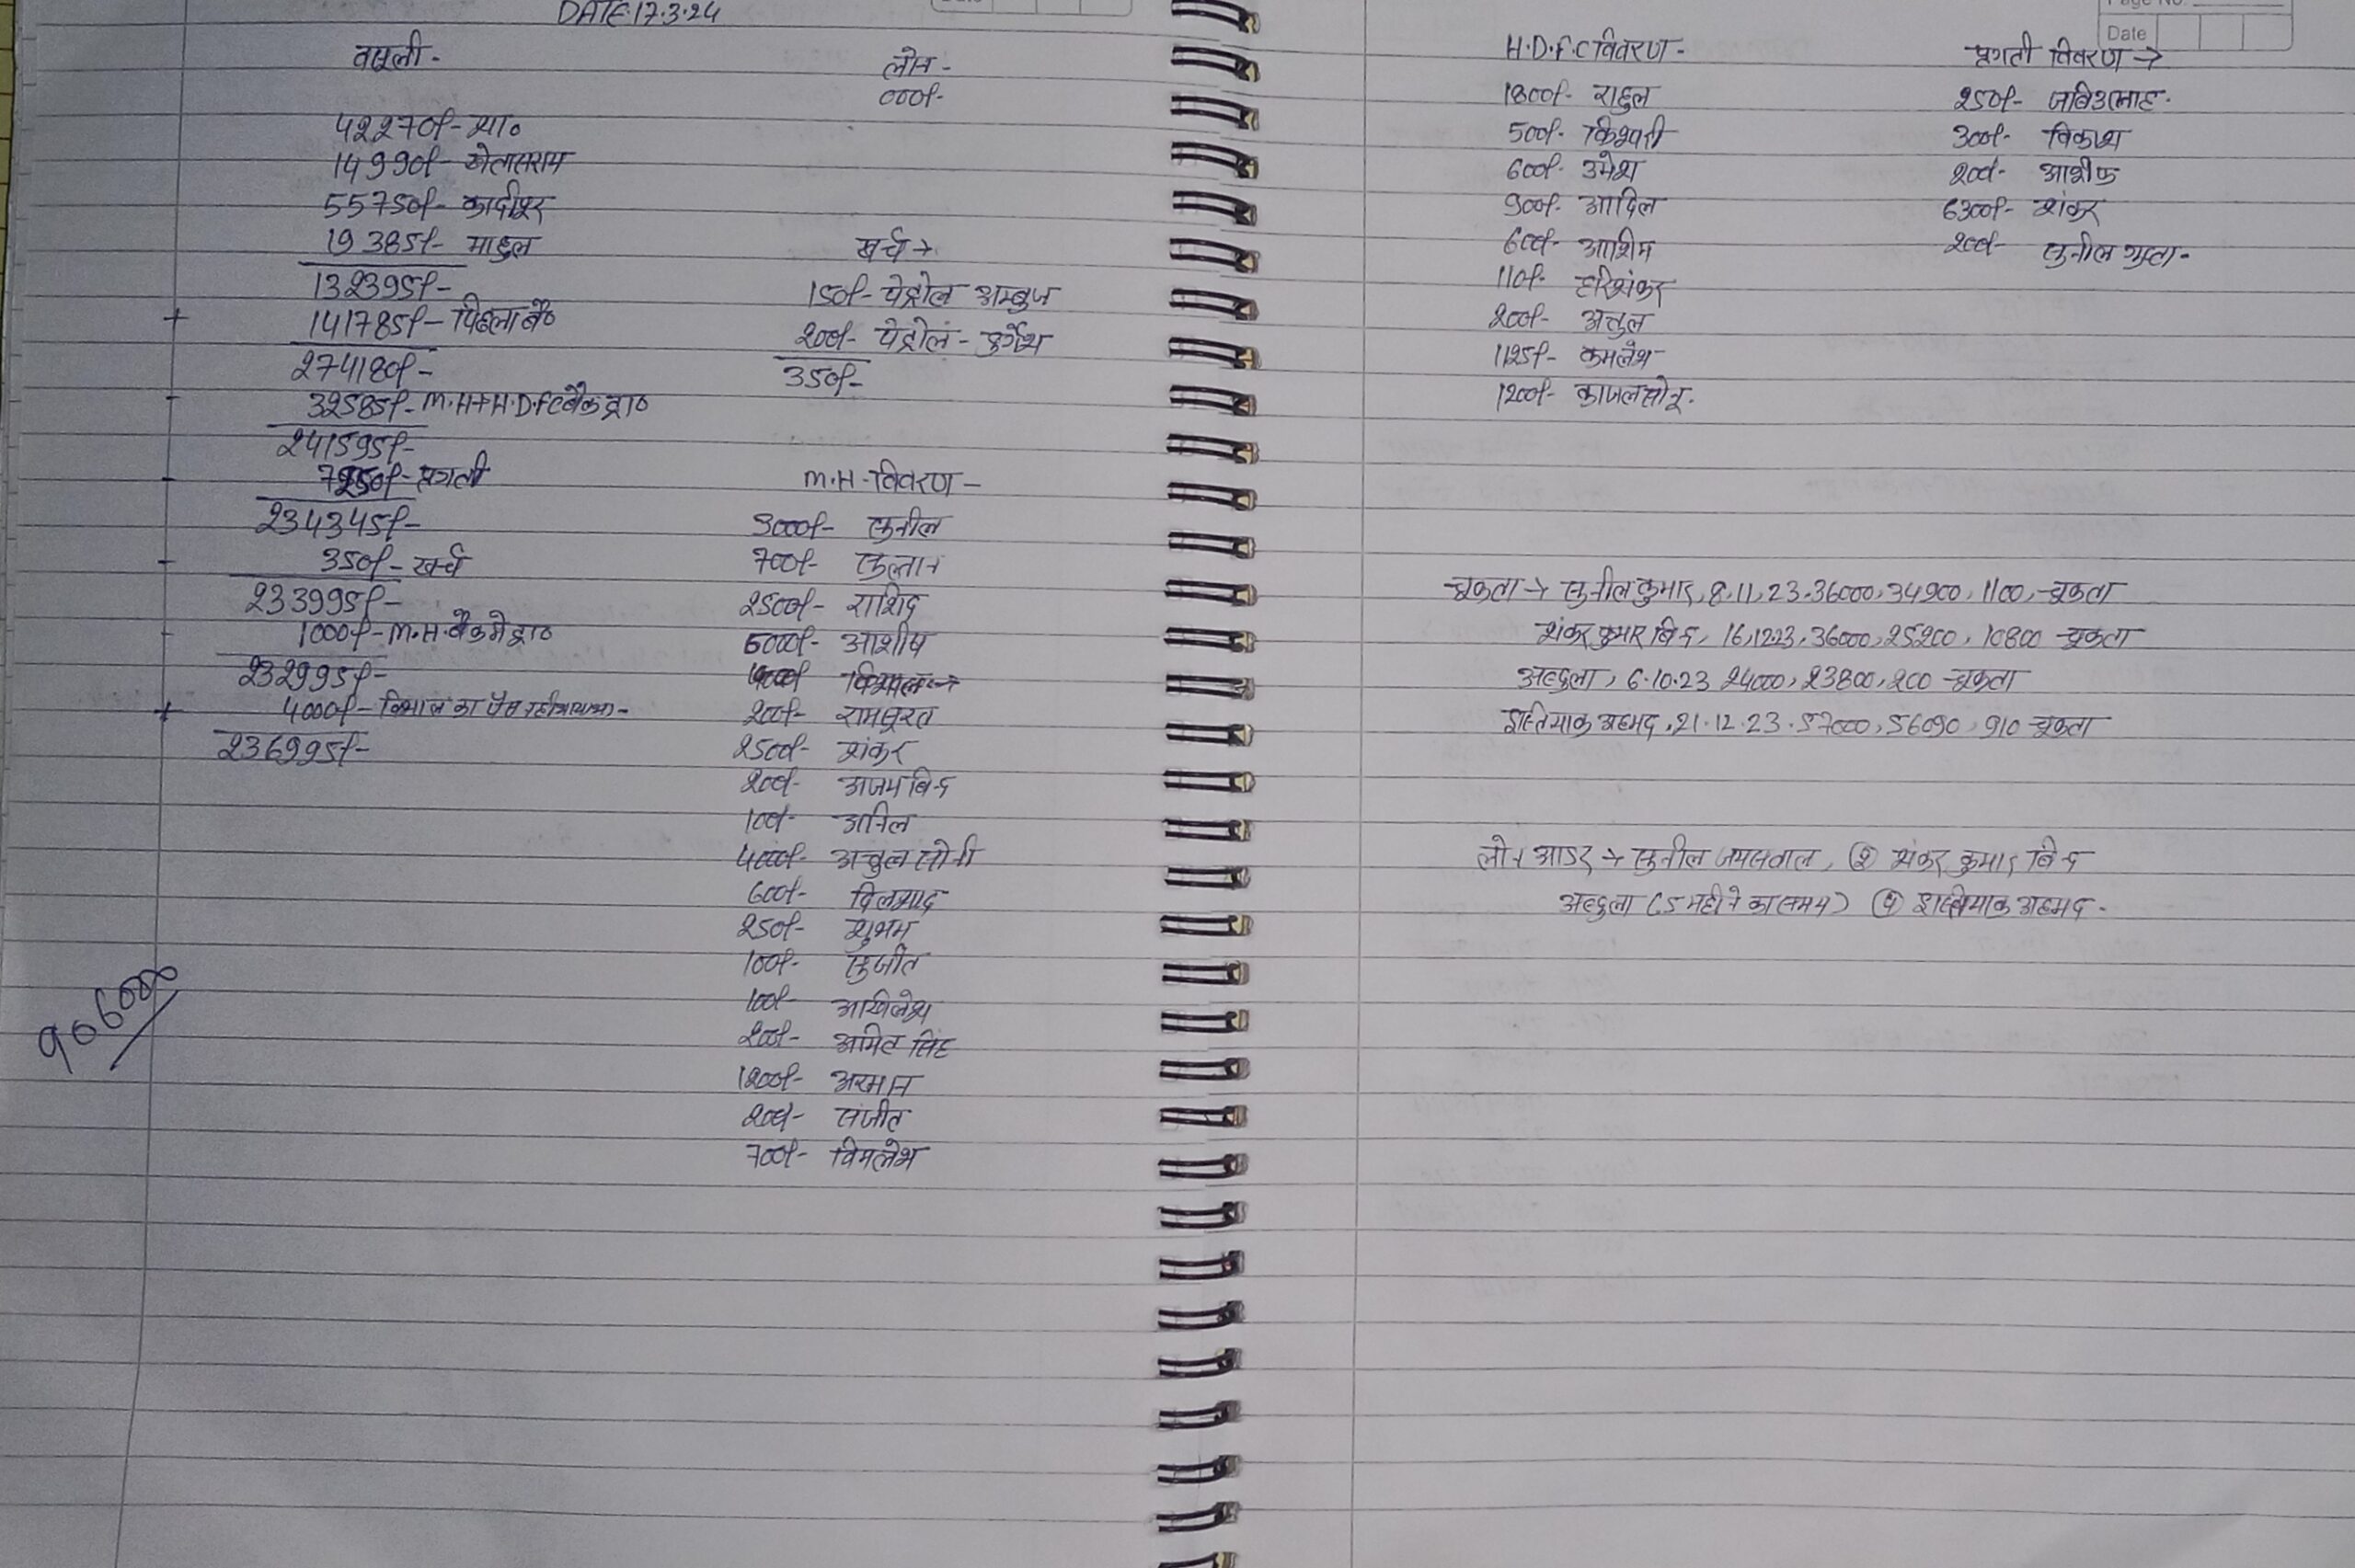 DATE:17.3.24
वसूली -
42270/- शा०
14990/- खेलासराय
55750/- कादीपुर
19385/- माहुल
132395/-
+ 141785/- पिछला बै०
274180/-
- 32585/- M.H+H.D.FC बैंक द्वा०
241595/-
- 7250/- प्रगती
234345/-
- 350/- खर्च
233995/-
- 1000/- M.H. बैंक मे द्वा०
232995/-
+ 4000/- विशाल का पैसा नही आया था -
236995/-
लोन -
000/-
खर्च →
150/- पेट्रोल अम्बुज
200/- पेट्रोल - दुर्गेश
350/-
M.H - विवरण -
3000/- सुनील
700/- सुल्तान
2500/- राशिद
5000/- आशीष
200/- रामसूरत
2500/- शंकर
200/- अजय बिन्द
100/- अनिल
4000/- अतुल सोनी
600/- दिलशाद
250/- शुभम
100/- सुजीत
100/- अखिलेश
200/- अमित सिंह
1200/- अरमान
200/- संजीत
700/- विमलेश
906000
Page No.
Date
H.D.F.C विवरण -
1800/- राहुल
500/-
600/- उमेश
900/- आदिल
600/- आशिम
110/- हरिशंकर
200/- अतुल
1125/- कमलेश
1200/- काजल सोनू.
प्रगती विवरण →
250/-
300/- विकाश
200/- आशीफ
6300/- शंकर
200/- सुनील गुप्ता -
चूकता → सुनील कुमार, 8.11,23.36000,34900, 1100, - चूकता
शंकर कुमार बिन्द, 16,12.23, 36000, 25200, 10800 - चूकता
अब्दुला, 6.10.23 24000, 23800, 200 - चूकता
इश्तियाक अहमद, 21.12.23.57000, 56090, 910 - चूकता
लोन आडर → सुनील जयसवाल, (२) शंकर कुमार बिन्द
अब्दुला (5 महीने का समय) (४) इश्तियाक अहमद -